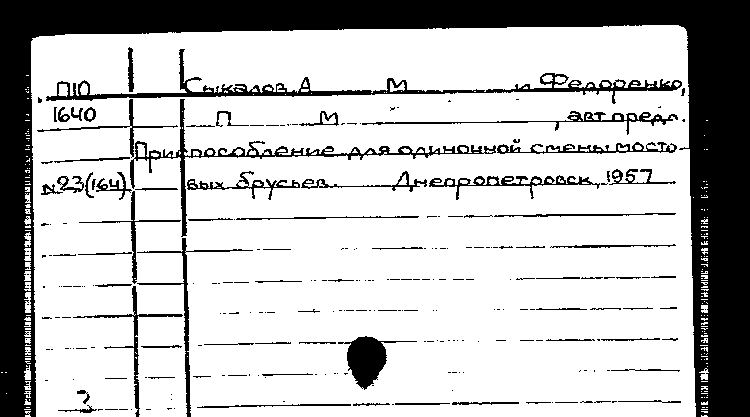 П10 Сыкалов, А М и Федоренко,
1640 П М , авт предл.
Приспособление для одиночной смены мосто-
№23(164) вых брусьев. Днепропетровск, 1957
3